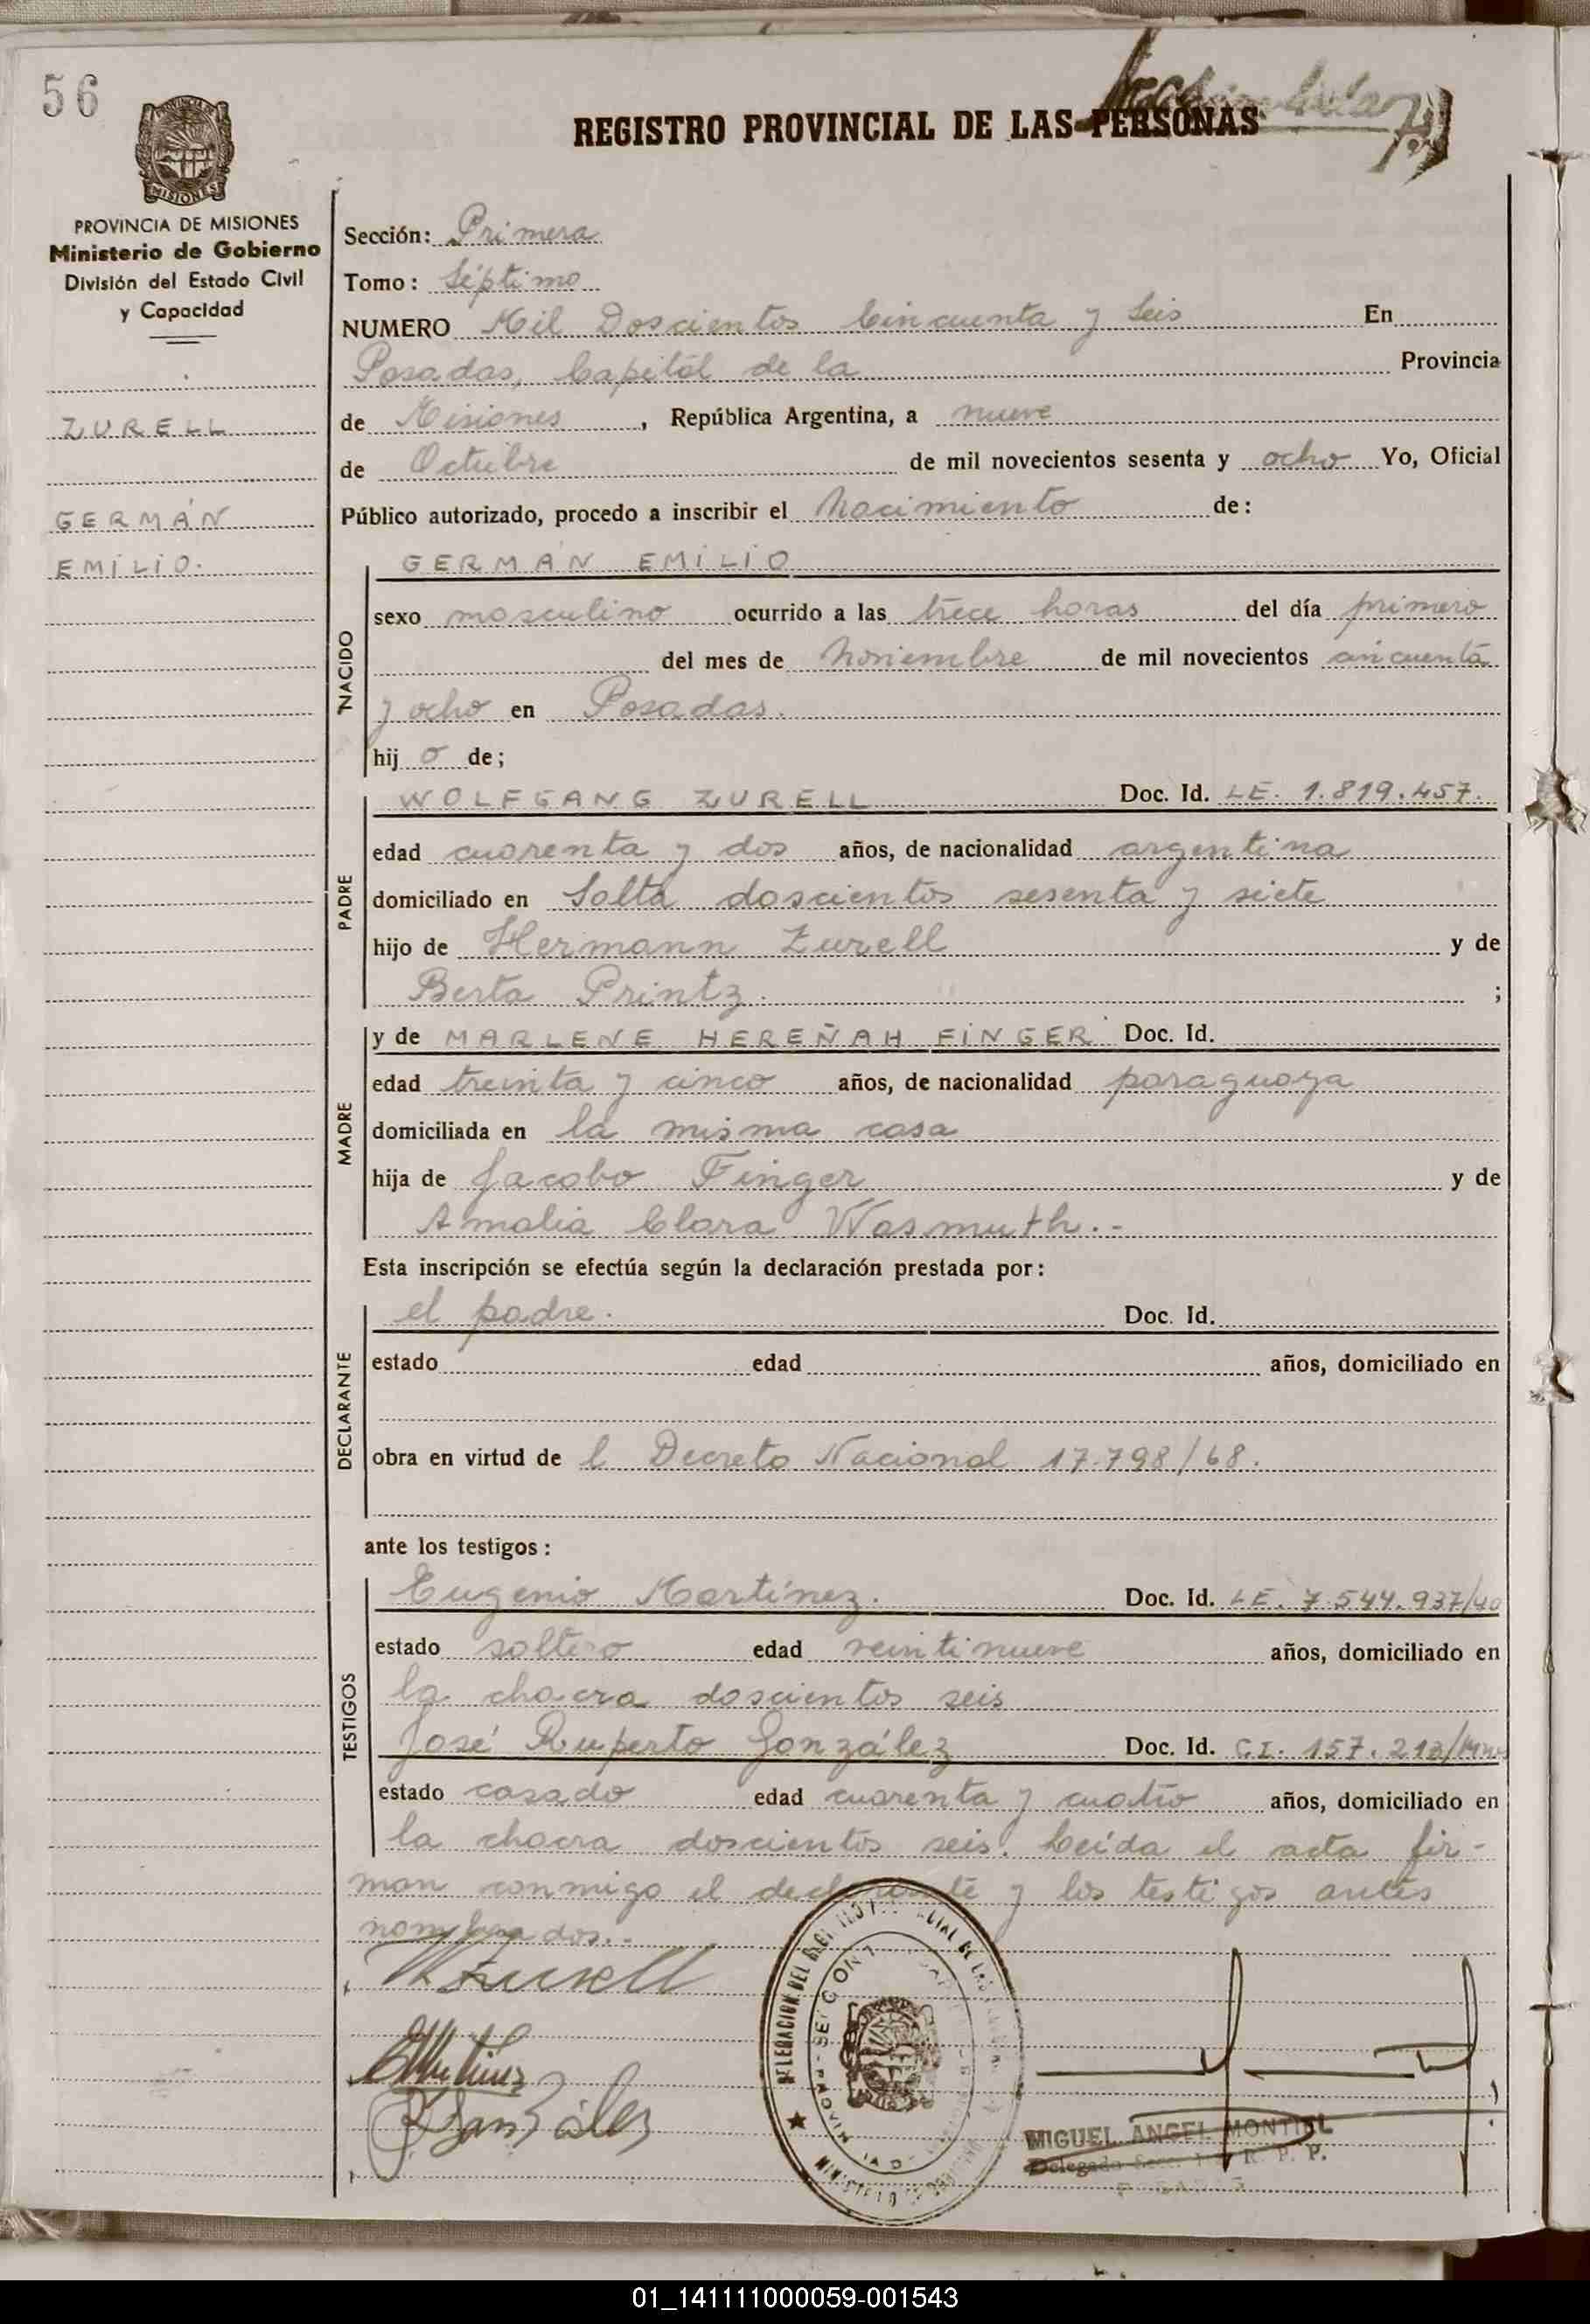 56
REGISTRO PROVINCIAL DE LAS PERSONAS
PROVINCIA DE MISIONES
Ministerio de Gobierno
División del Estado Civil
y Capacidad
ZURELL
GERMÁN
EMILIO.
Sección: Primera
Tomo: Séptimo
NUMERO Mil Doscientos Cincuenta y Seis En
Posadas, Capital de la Provincia
de Misiones, República Argentina, a nueve
de Octubre de mil novecientos sesenta y ocho Yo, Oficial
Público autorizado, procedo a inscribir el Nacimiento de:
NACIDO
GERMÁN EMILIO
sexo masculino ocurrido a las trece horas del día primero
del mes de Noviembre de mil novecientos cincuenta
y ocho en Posadas.
hij o de;
PADRE
WOLFGANG ZURELL Doc. Id. LE. 1.819.457.
edad cuarenta y dos años, de nacionalidad argentina
domiciliado en Salta doscientos sesenta y siete
hijo de Hermann Zurell y de
Berta Printz. ;
MADRE
y de MARLENE HEREÑAH FINGER Doc. Id.
edad treinta y cinco años, de nacionalidad paraguaya
domiciliada en la misma casa
hija de Jacobo Finger y de
Amalia Clara Wasmuth.-
Esta inscripción se efectúa según la declaración prestada por:
DECLARANTE
el padre. Doc. Id.
estado edad años, domiciliado en
obra en virtud de l Decreto Nacional 17.798/68.
ante los testigos:
TESTIGOS
Eugenio Martínez. Doc. Id. LE. 7.544.937/40
estado soltero edad veintinueve años, domiciliado en
la chacra doscientos seis
José Ruperto González Doc. Id. C.I. 157.213/Mnes
estado casado edad cuarenta y cuatro años, domiciliado en
la chacra doscientos seis. Leída el acta fir-
man conmigo el declarante y los testigos antes
nombrados.-
W Zurell
EMartinez
González
MIGUEL ANGEL MONTIEL
Delegado Secc. R. P. P.
POSADAS
01_141111000059-001543